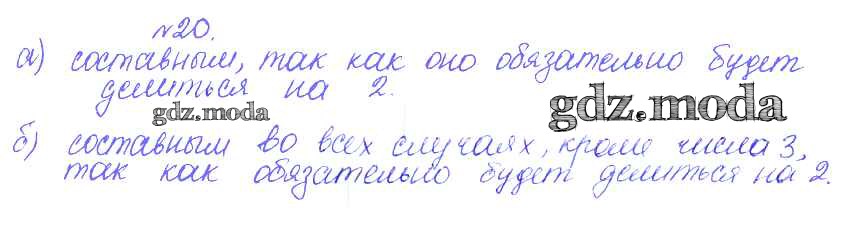 №20.
а) составным, так как оно обязательно будет
делиться на 2.
gdz.moda
gdz.moda
б) составным во всех случаях, кроме числа 3,
так как обязательно будет делиться на 2.